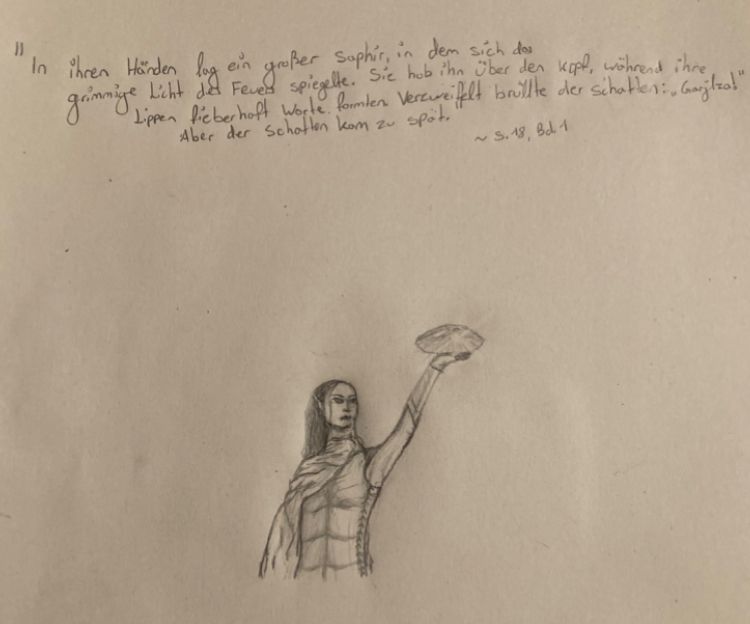 "In ihren Händen lag ein großer Saphir, in dem sich das
grimmige Licht des Feuers spiegelte. Sie hob ihn über den Kopf, während ihre
Lippen fieberhaft Worte formten. Verzweifelt brüllte der Schatten: „Garjzla!"
Aber der Schatten kam zu spät."
~ S. 18, Bd. 1